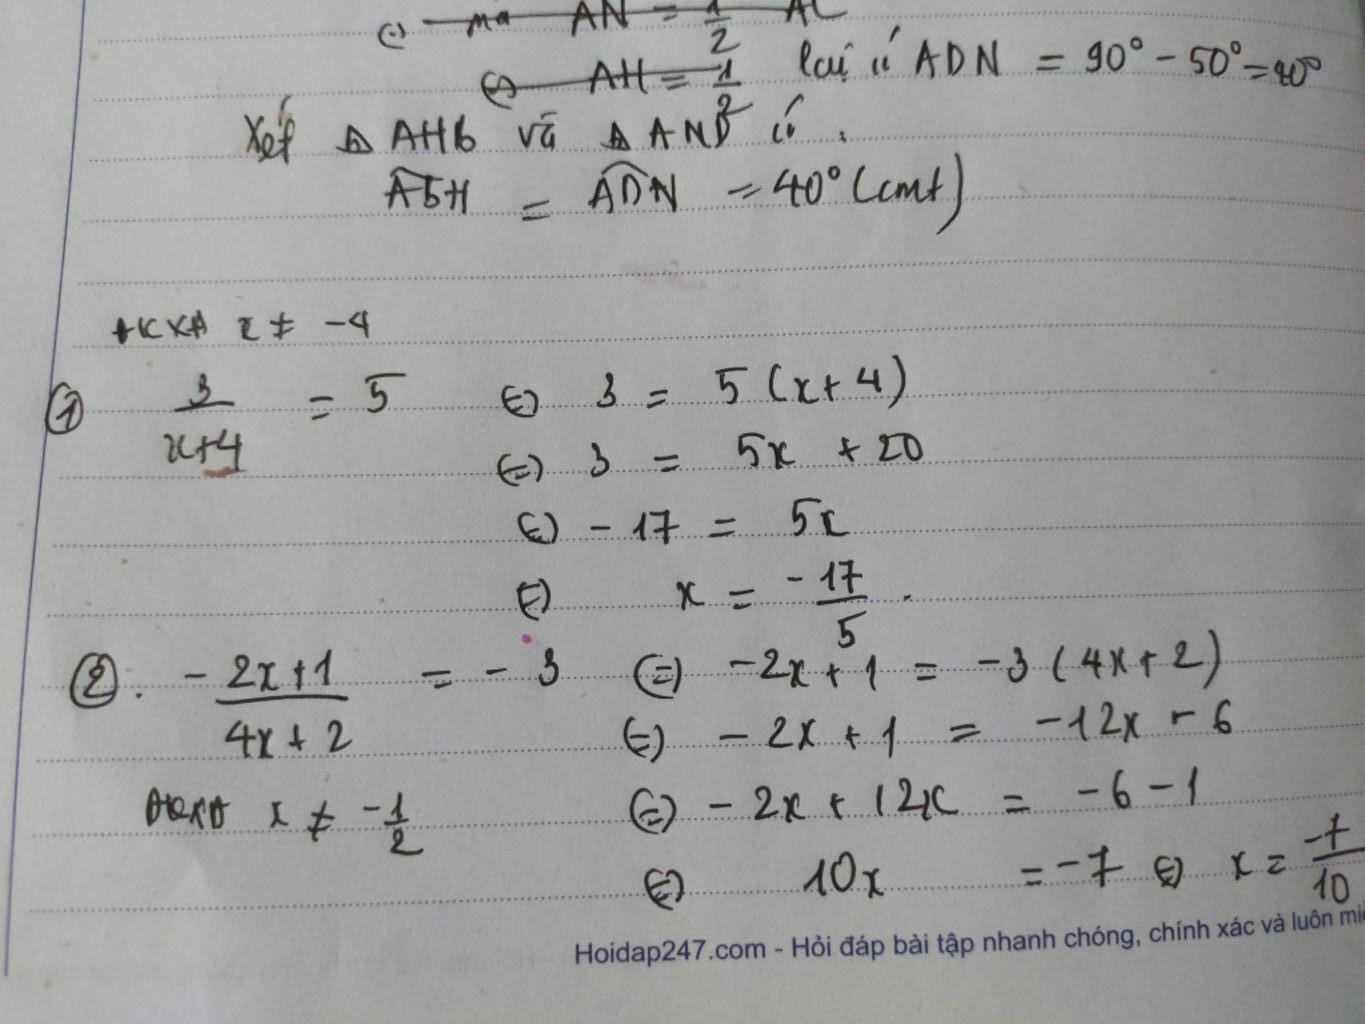 (-) mà AN = 1/2 AC
(=) AH = 1/2 lại có ADN = 90° - 50° = 40°
Xét Δ AHB và Δ AND có.
ABH = ADN = 40° (cmt)
ĐKXĐ x ≠ -4
① 3/(x+4) = 5 (=) 3 = 5 (x+4)
(=) 3 = 5x + 20
(=) - 17 = 5x
(=) x = -17/5.
②. - (2x+1)/(4x+2) = - 3 (=) -2x + 1 = -3 (4x+2)
(=) - 2x + 1 = -12x - 6
ĐKXĐ x ≠ -1/2 (=) - 2x + 12x = -6 - 1
(=) 10x = -7 (=) x = -7/10
Hoidap247.com - Hỏi đáp bài tập nhanh chóng, chính xác và luôn miễ